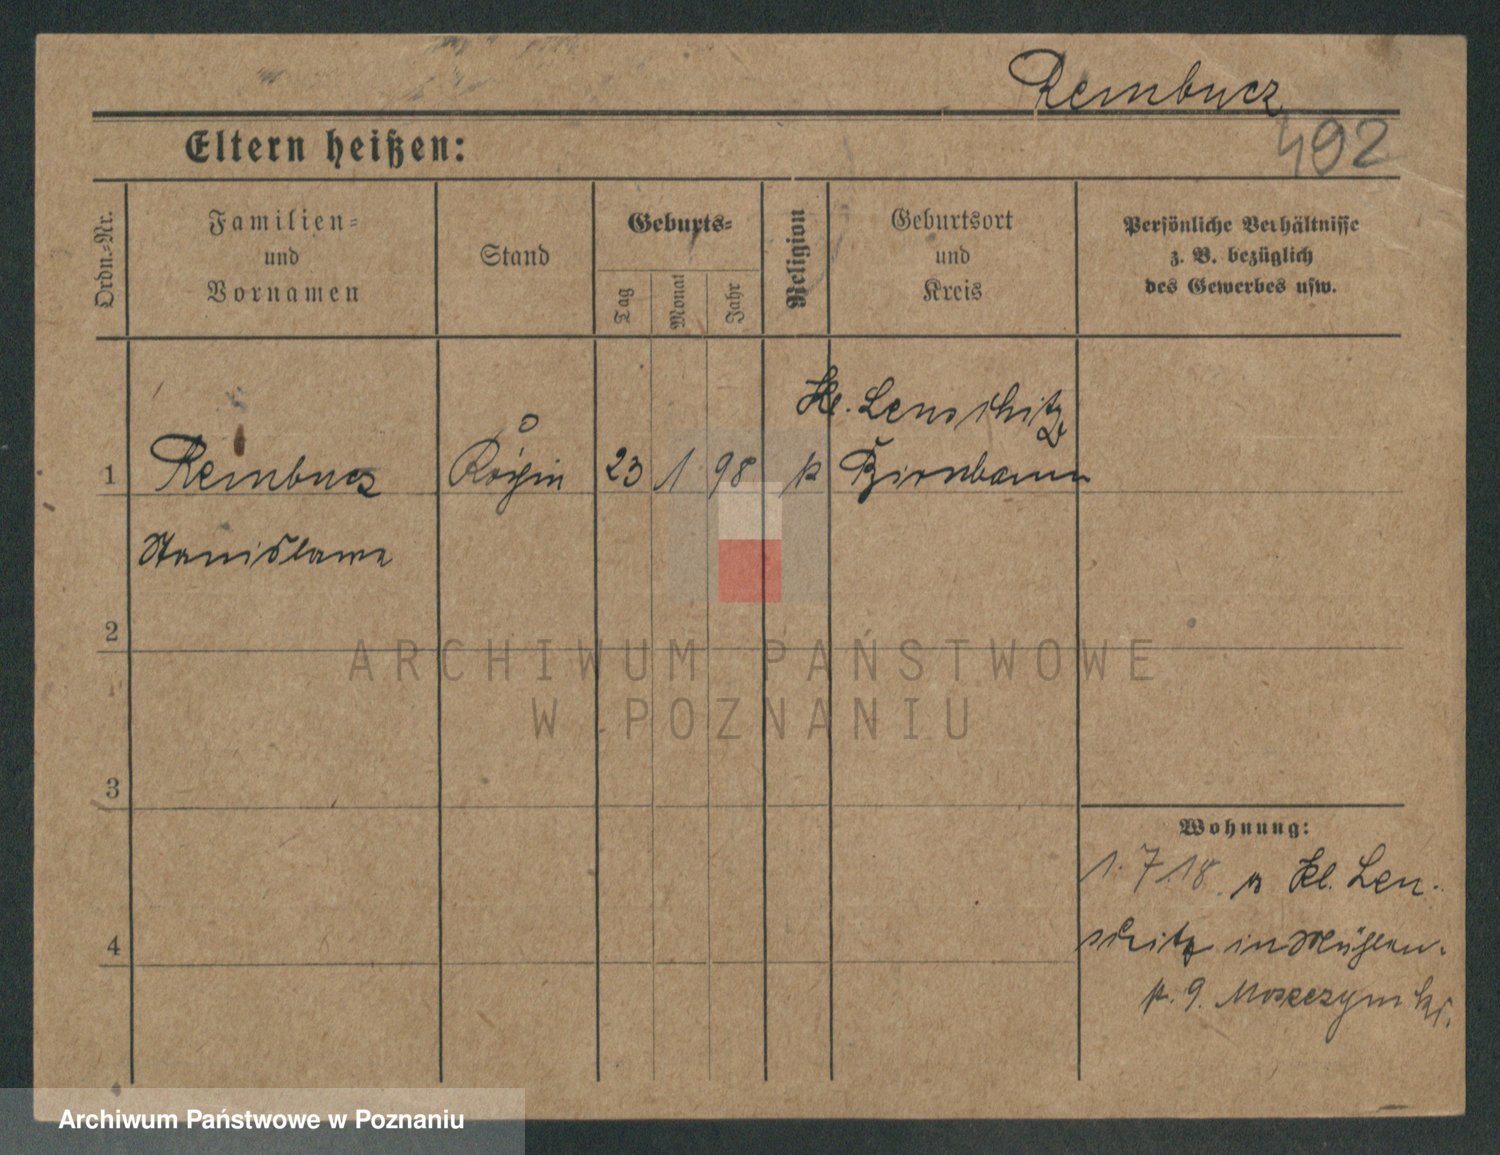 Rembucz
492
Eltern heißen:
Ordn.-Nr.
Familien-
und
Vornamen
Stand
Geburts-
Tag
Monat
Jahr
Religion
Geburtsort
und
Kreis
Persönliche Verhältnisse
z. B. bezüglich
des Gewerbes usw.
Kl. Lenschitz
1 Rembucz Köchin 23 1 98 k Birnbaum
Stanislawa
2
ARCHIWUM PAŃSTWOWE
W POZNANIU
3
Wohnung:
1. 7. 18. n Kl. Len-
schitz in Mühlen-
4
9. Moszczynski.
Archiwum Państwowe w Poznaniu